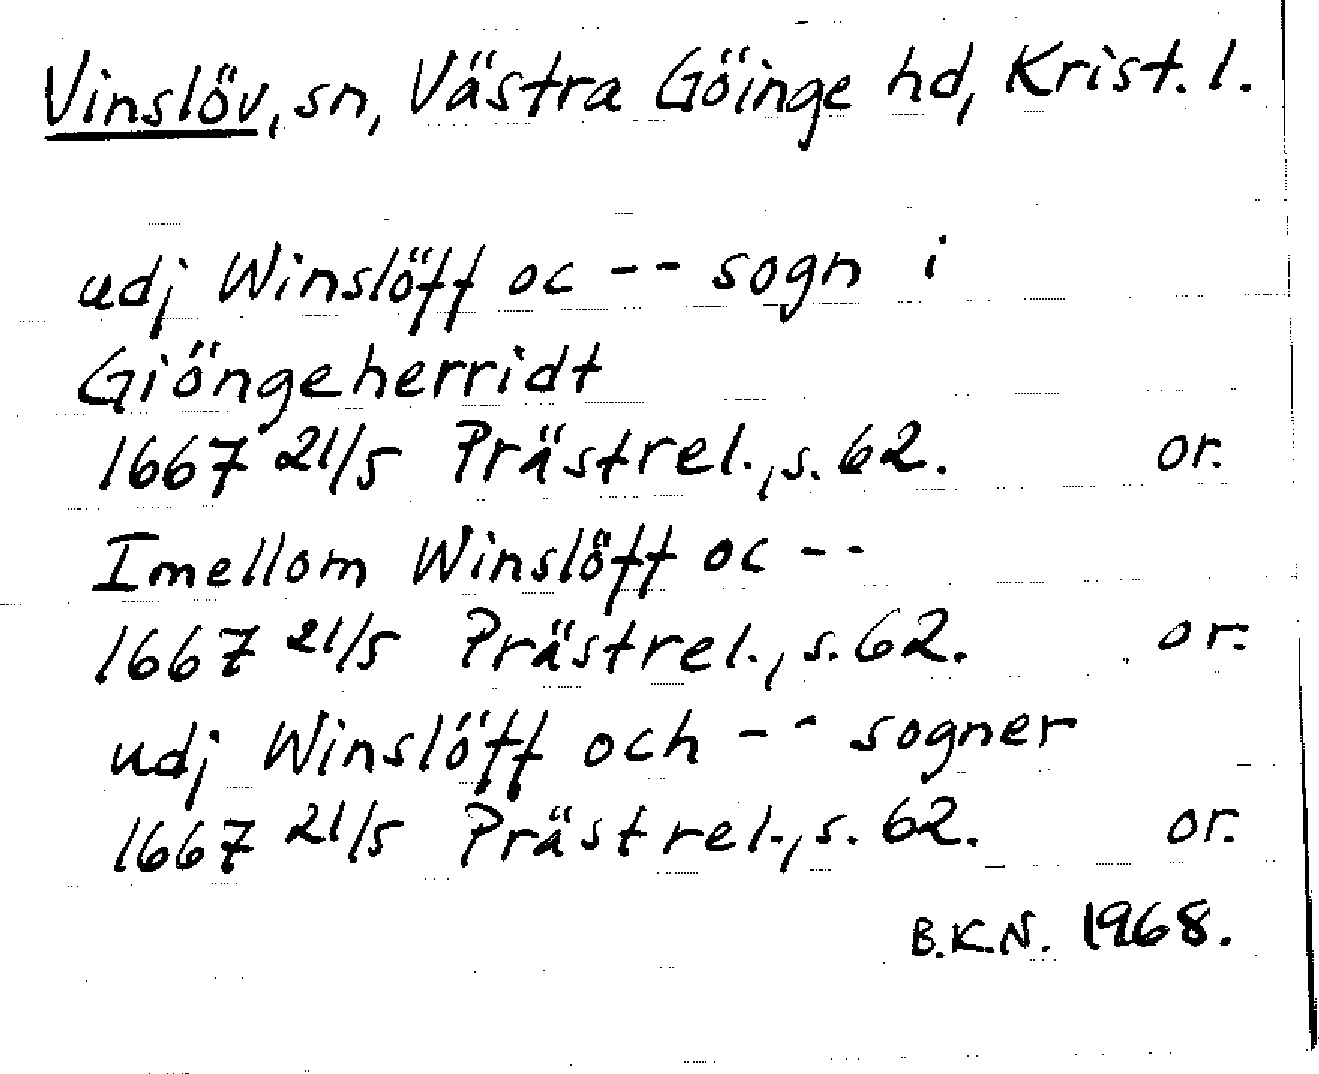 Vinslöv, sn, Västra Göinge hd, Krist. l.
udj Winslöff oc -- sogn i
Giöngeherridt
1667 21/5 Prästrel., s. 62. or.
Imellom Winslöff oc --
1667 21/5 Prästrel., s. 62. or.
udj Winslöff och -- sogner
1667 21/5 Prästrel., s. 62. or.
B.K.N. 1968.